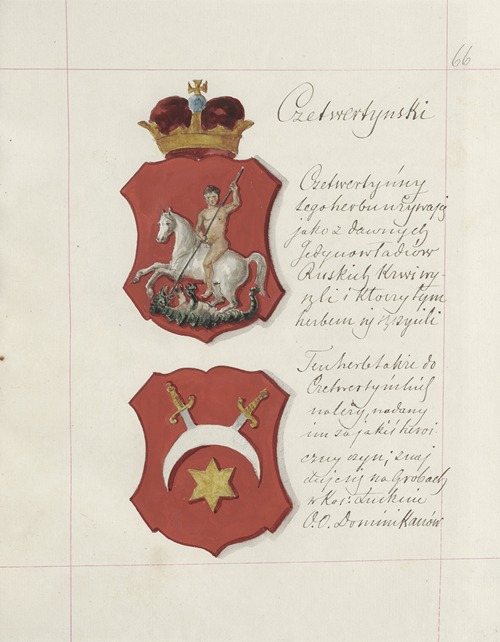 66
Czetwertynski
Czetwertyńscy
tego herbu używają
jako z dawnych
Jedynowładców
Ruskich Krwi wy-
szli i którzy tym
herbem się szczycili
Ten herb także do
Czetwertyńskich
należy, nadany
im za jakiś heroi-
czny czyn; znaj
duje się na Grobach
w Koś: Łuckim
O.O. Dominikanów